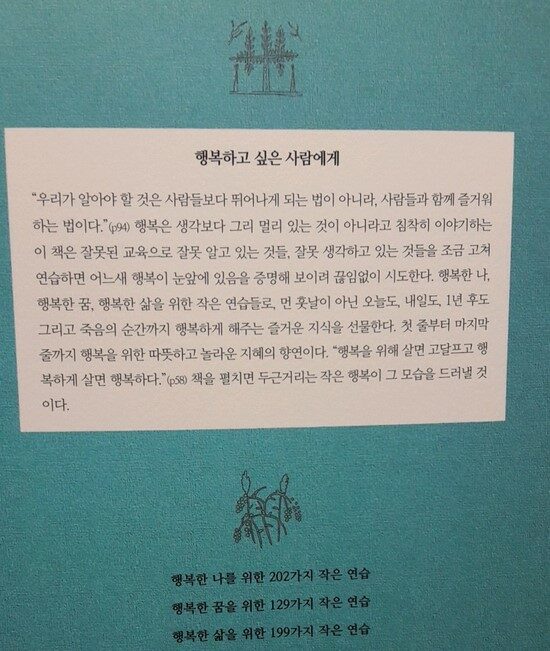 행복하고 싶은 사람에게
“우리가 알아야 할 것은 사람들보다 뛰어나게 되는 법이 아니라, 사람들과 함께 즐거워
하는 법이다.”(p94) 행복은 생각보다 그리 멀리 있는 것이 아니라고 침착히 이야기하는
이 책은 잘못된 교육으로 잘못 알고 있는 것들, 잘못 생각하고 있는 것들을 조금 고쳐
연습하면 어느새 행복이 눈앞에 있음을 증명해 보이려 끊임없이 시도한다. 행복한 나,
행복한 꿈, 행복한 삶을 위한 작은 연습들로, 먼 훗날이 아닌 오늘도, 내일도, 1년 후도
그리고 죽음의 순간까지 행복하게 해주는 즐거운 지식을 선물한다. 첫 줄부터 마지막
줄까지 행복을 위한 따뜻하고 놀라운 지혜의 향연이다. “행복을 위해 살면 고달프고 행
복하게 살면 행복하다.”(p58) 책을 펼치면 두근거리는 작은 행복이 그 모습을 드러낼 것
이다.
행복한 나를 위한 202가지 작은 연습
행복한 꿈을 위한 129가지 작은 연습
행복한 삶을 위한 199가지 작은 연습